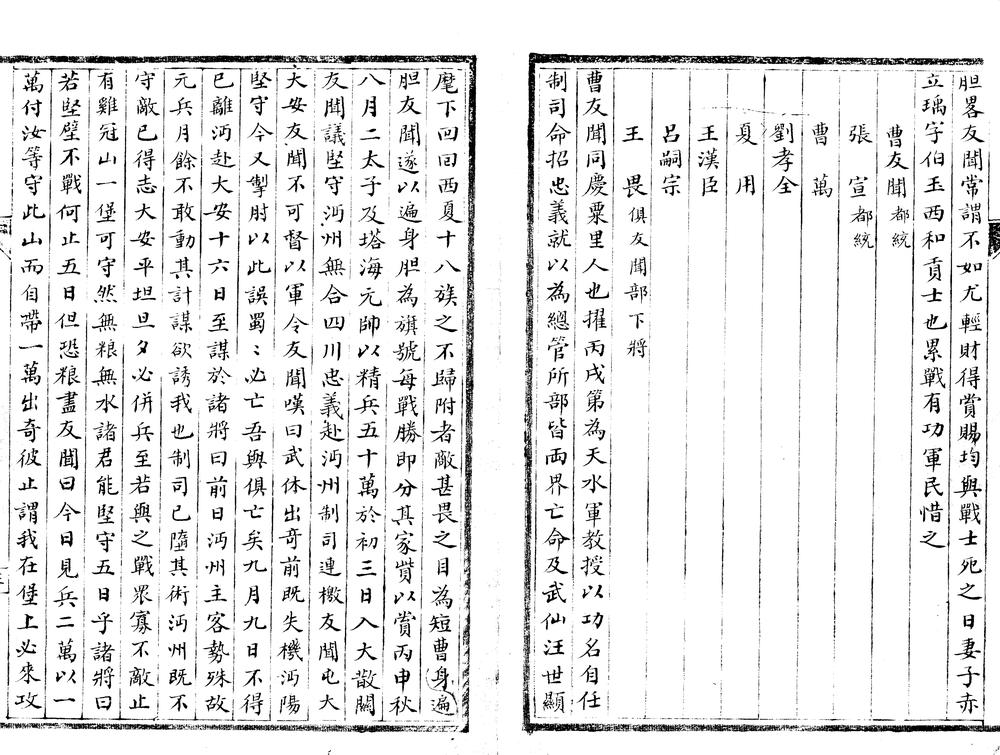 胆畧友聞常謂不如尤輕財得賞賜均與戰士死之日妻子赤
立瑀字伯玉西和貢士也累戰有功軍民惜之
曹友聞都統
張宣都統
曹萬
劉孝全
夏用
王漢臣
呂嗣宗
王畏俱友聞部下將
曹友聞同慶粟里人也擢丙戌第為天水軍教授以功名自任
制司命招忠義就以為總管所部皆两界亡命及武仙汪世顯
麾下回回西夏十八族之不歸附者敵甚畏之目為短曹身遍
胆友聞遂以遍身胆為旗號每戰勝即分其家貲以賞丙申秋
八月二太子及塔海元帥以精兵五十萬於初三日入大散關
友聞議堅守沔州無合四川忠義赴沔州制司連檄友聞屯大
大安友聞不可督以軍令友聞嘆曰武休出竒前既失機沔陽
堅守今又掣肘以此誤蜀〻必亡吾與俱亡矣九月九日不得
已離沔赴大安十六日至謀於諸將曰前日沔州主客勢殊故
元兵月餘不敢動其計謀欲誘我也制司已墮其術沔州既不
守敵已得志大安平坦旦夕必併兵至若與之戰眾寡不敵止
有雞冠山一堡可守然無粮無水諸君能堅守五日乎諸將曰
若堅壁不戰何止五日但恐粮盡友聞曰今日見兵二萬以一
萬付汝等守此山而自帶一萬出奇彼止謂我在堡上必來攻